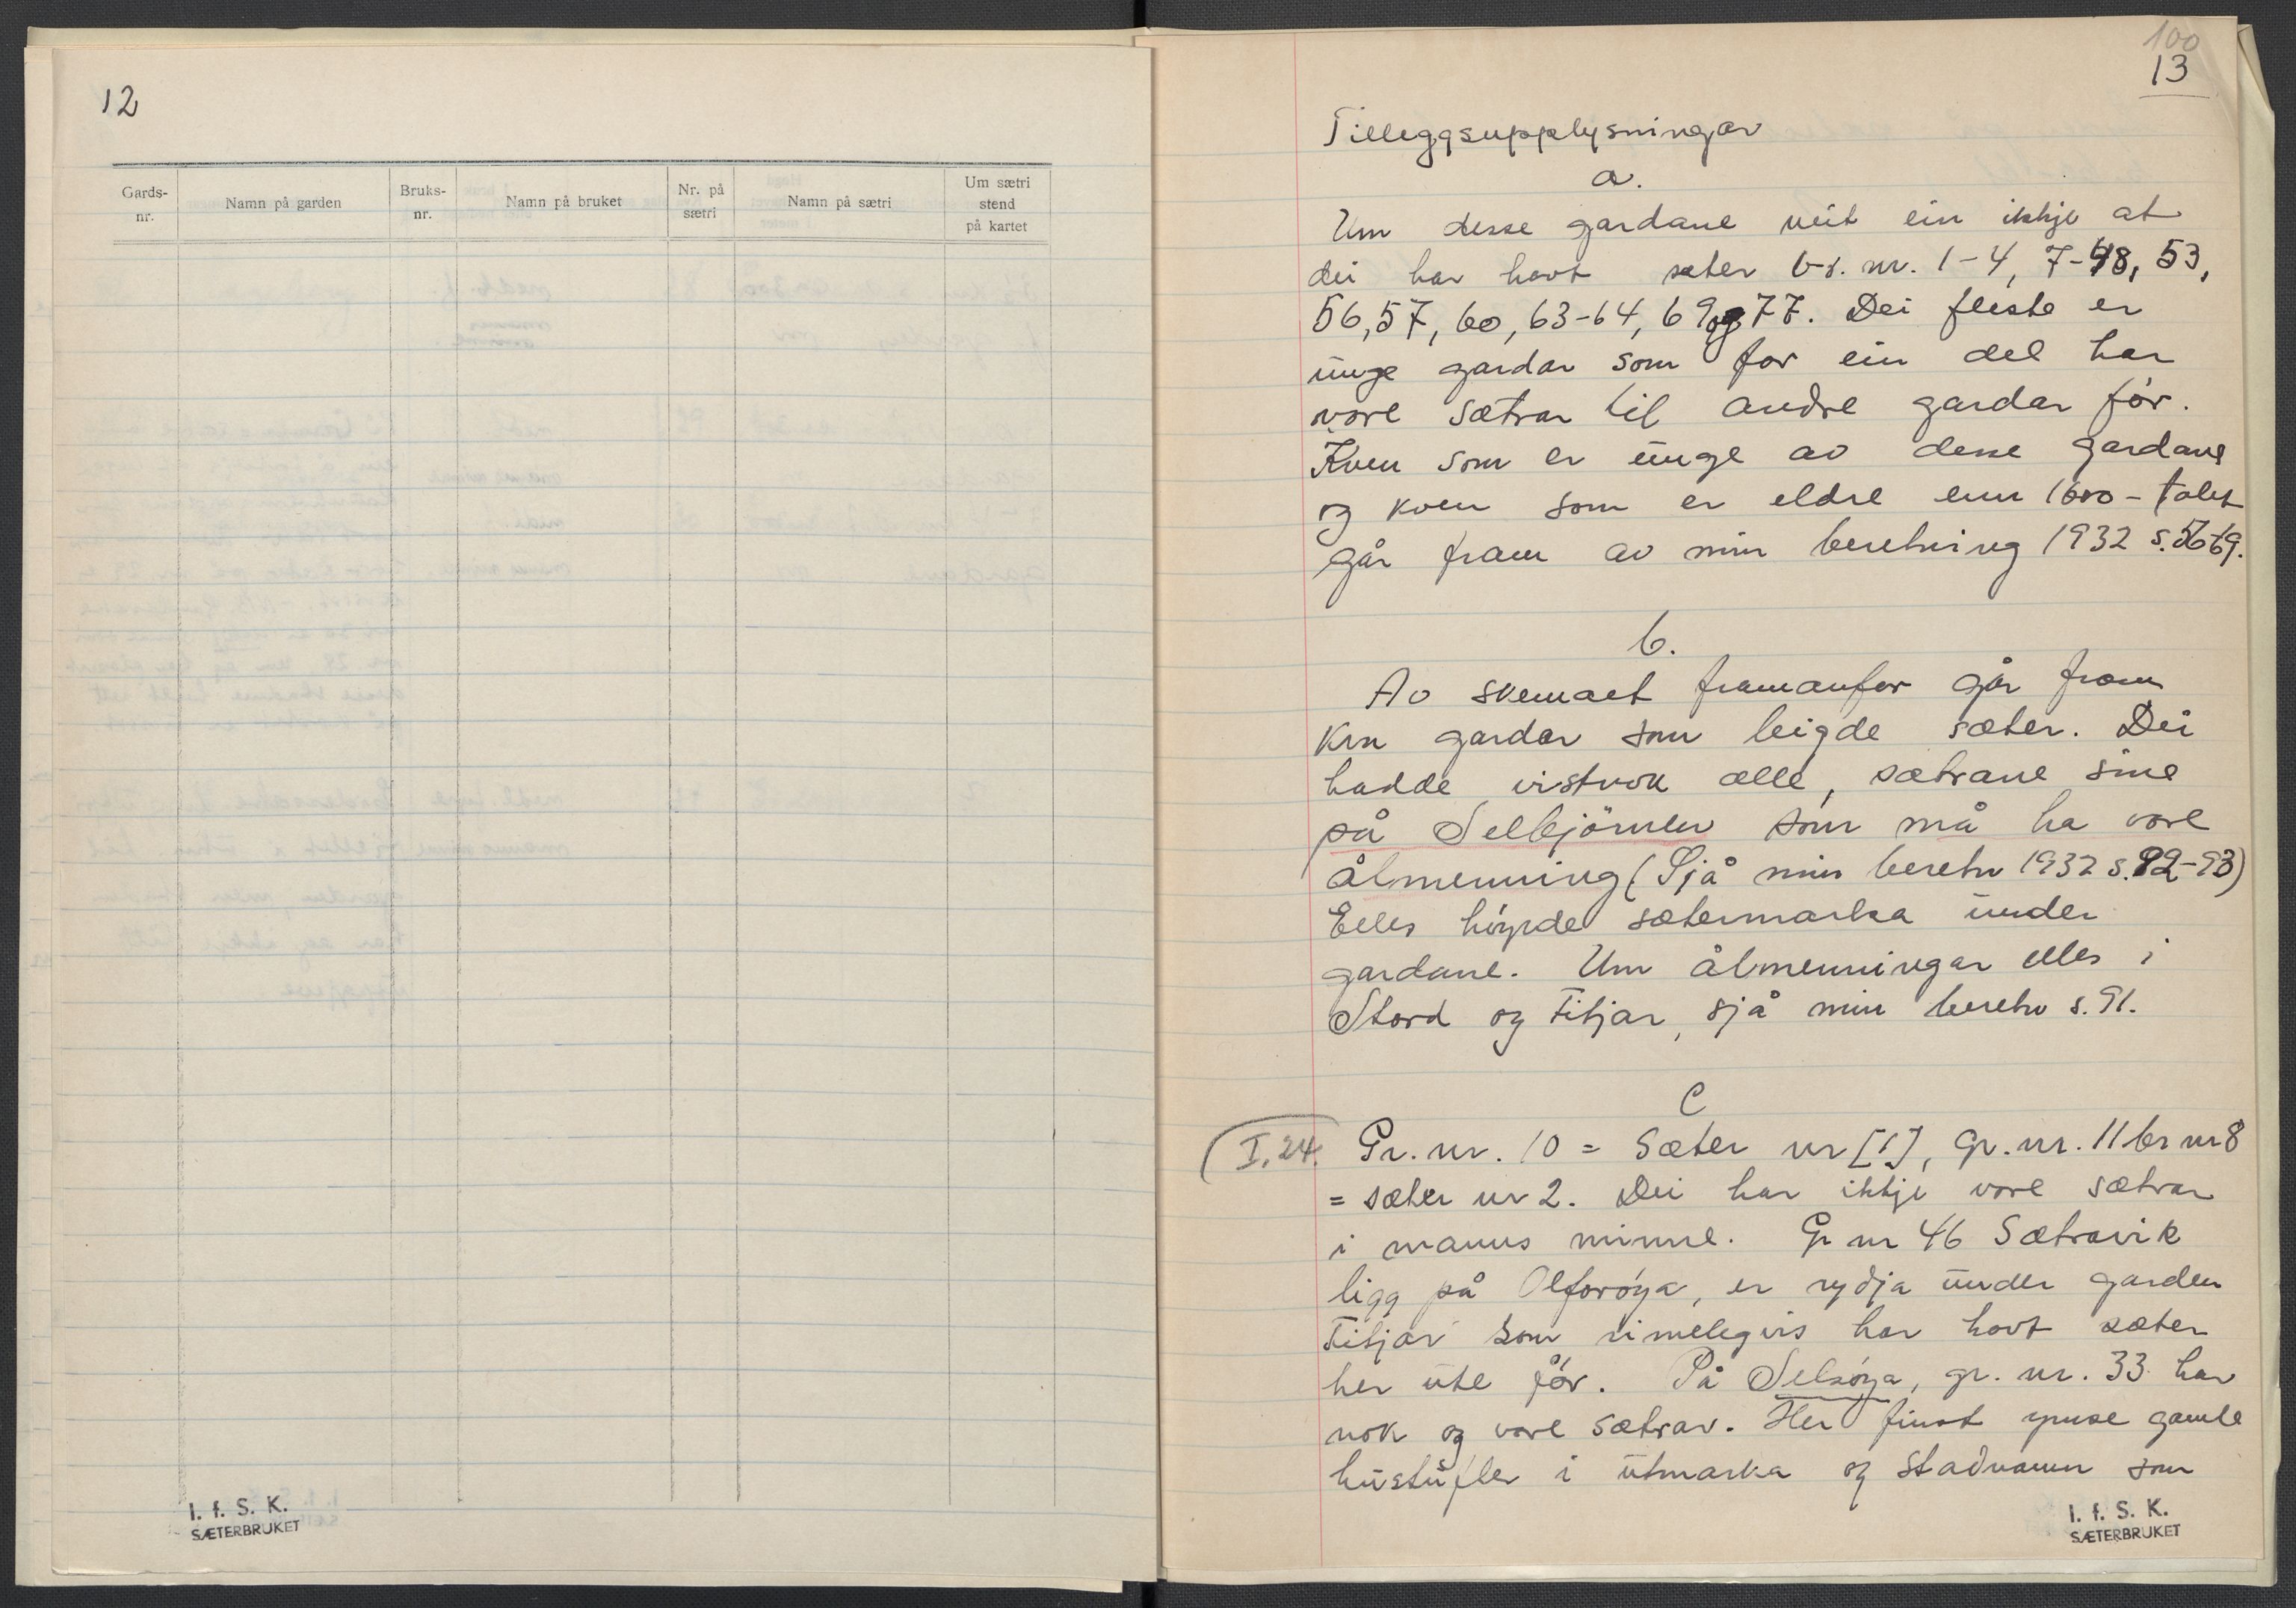 12
Gards-
nr.
Namn på garden
Bruks-
nr.
Namn på bruket
Nr. på
sætri
Namn på sætri
Um sætri
stend
på kartet
I. f. S. K.
SÆTERBRUKET
100
13
Tilleggsupplysningar
a.
Um desse gardane veit ein ikkje at
dei har havt sæter nr. 1-4, 7-48, 53,
56, 57, 60, 63-64, 69 og 77. Dei fleste er
unge gardar som for ein del har
vore sætrar til andre gardar för.
Kven som er unge av desse gardane
og kven som er eldre enn 1600-talet
går fram av min beretning 1932 s. 56-69.
b.
Av skemaet framanfor går fram
kva gardar som leigde sæter. Dei
hadde vistnok alle, sætrane sine
på Selbjörnen som må ha vore
ålmenning (Sjå min beretn 1932 s. 92-93)
Elles höyrde sætermarka under
gardane. Um ålmenningar elles i
Stord og Fitjar, sjå min beretn s. 91.
C
I, 24. Gr. nr. 10 = Sæter nr [1], gr. nr. 11 br nr 8
= sæter nr 2. Dei har ikkje vore sætrar
i manns minne. Gr nr 46 Sætravik
ligg på Olforöya, er rydja under garden
Fitjar som rimelegvis har havt sæter
her ute för. På Selsöya, gr. nr. 33 har
nok og vore sætrar. Her finst ymse gamle
hustufter i utmarka og stadnamn som
I. f. S. K.
SÆTERBRUKET